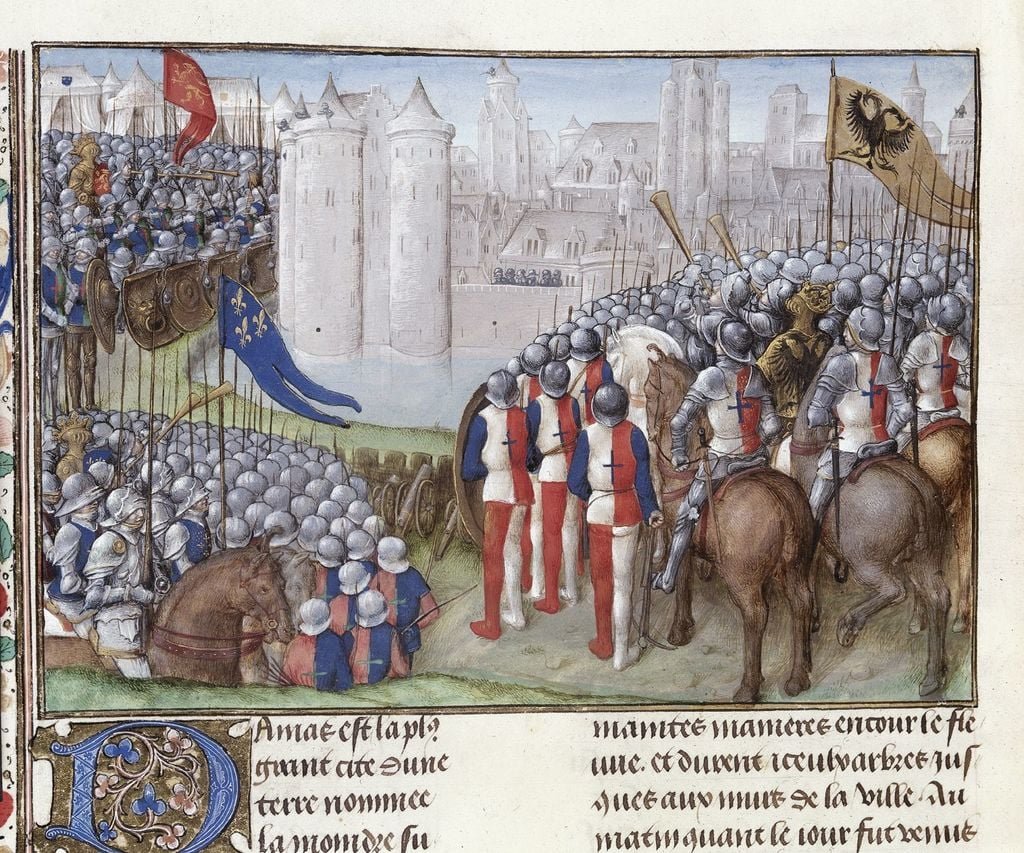 DAmas est la plꝰ
grant cite dune
terre nommee
la moindre su
maintes manieres entour le fle
uue. et durent iceulx arbres jus
ques aux murs de la ville. Au
matin quant le iour fut venus